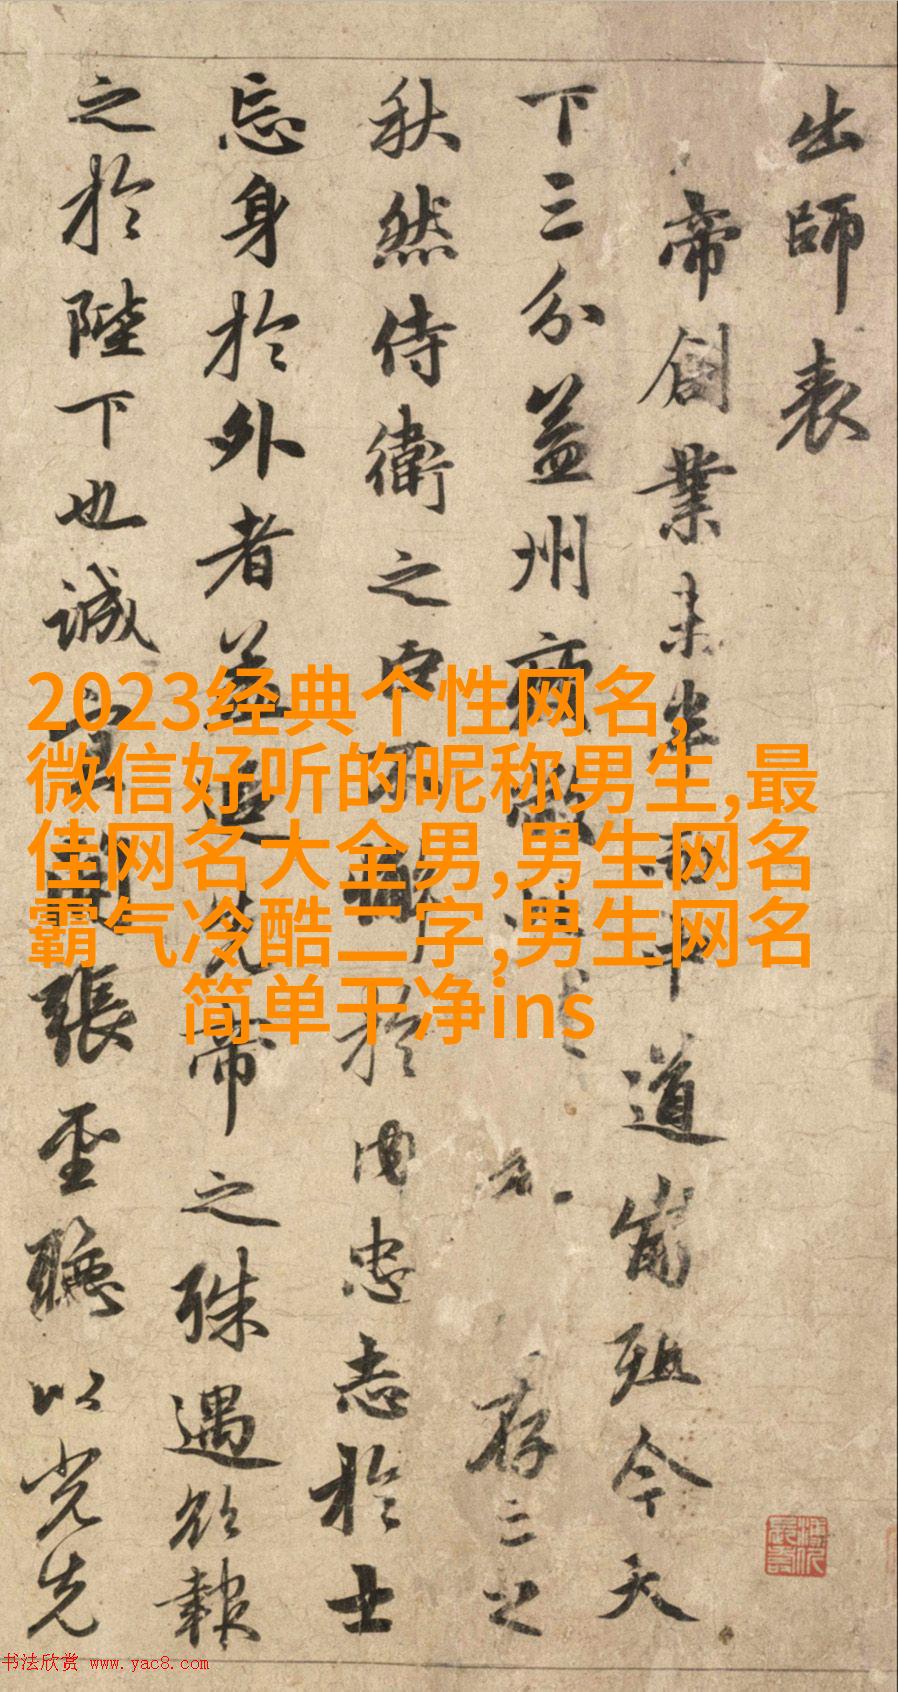 出師表
帝創業未半而中道崩殂今天
下三分益州疲敝此存亡之
秋然侍衛之臣不懈於内忠志於士
忘身於外者盖追先帝之殊遇欲報
之於陛下也誠宜開張聖聽以光先
2023经典个性网名,
微信好听的昵称男生,最
佳网名大全男,男生网名
霸气冷酷二字,男生网名
简单干净ins
书法欣赏 www.yac8.com